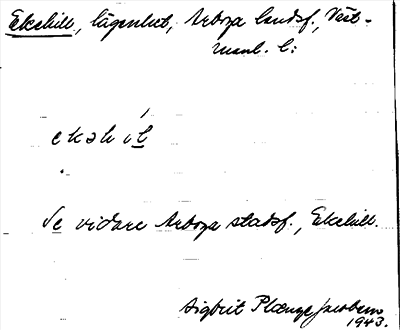 Ekehill, lägenhet, Arboga landsf., Väst-
manl. l:
ekəhil
Se vidare Arboga stadsf., Ekehill.
Sigbrit Plænge Jacobson
1943.